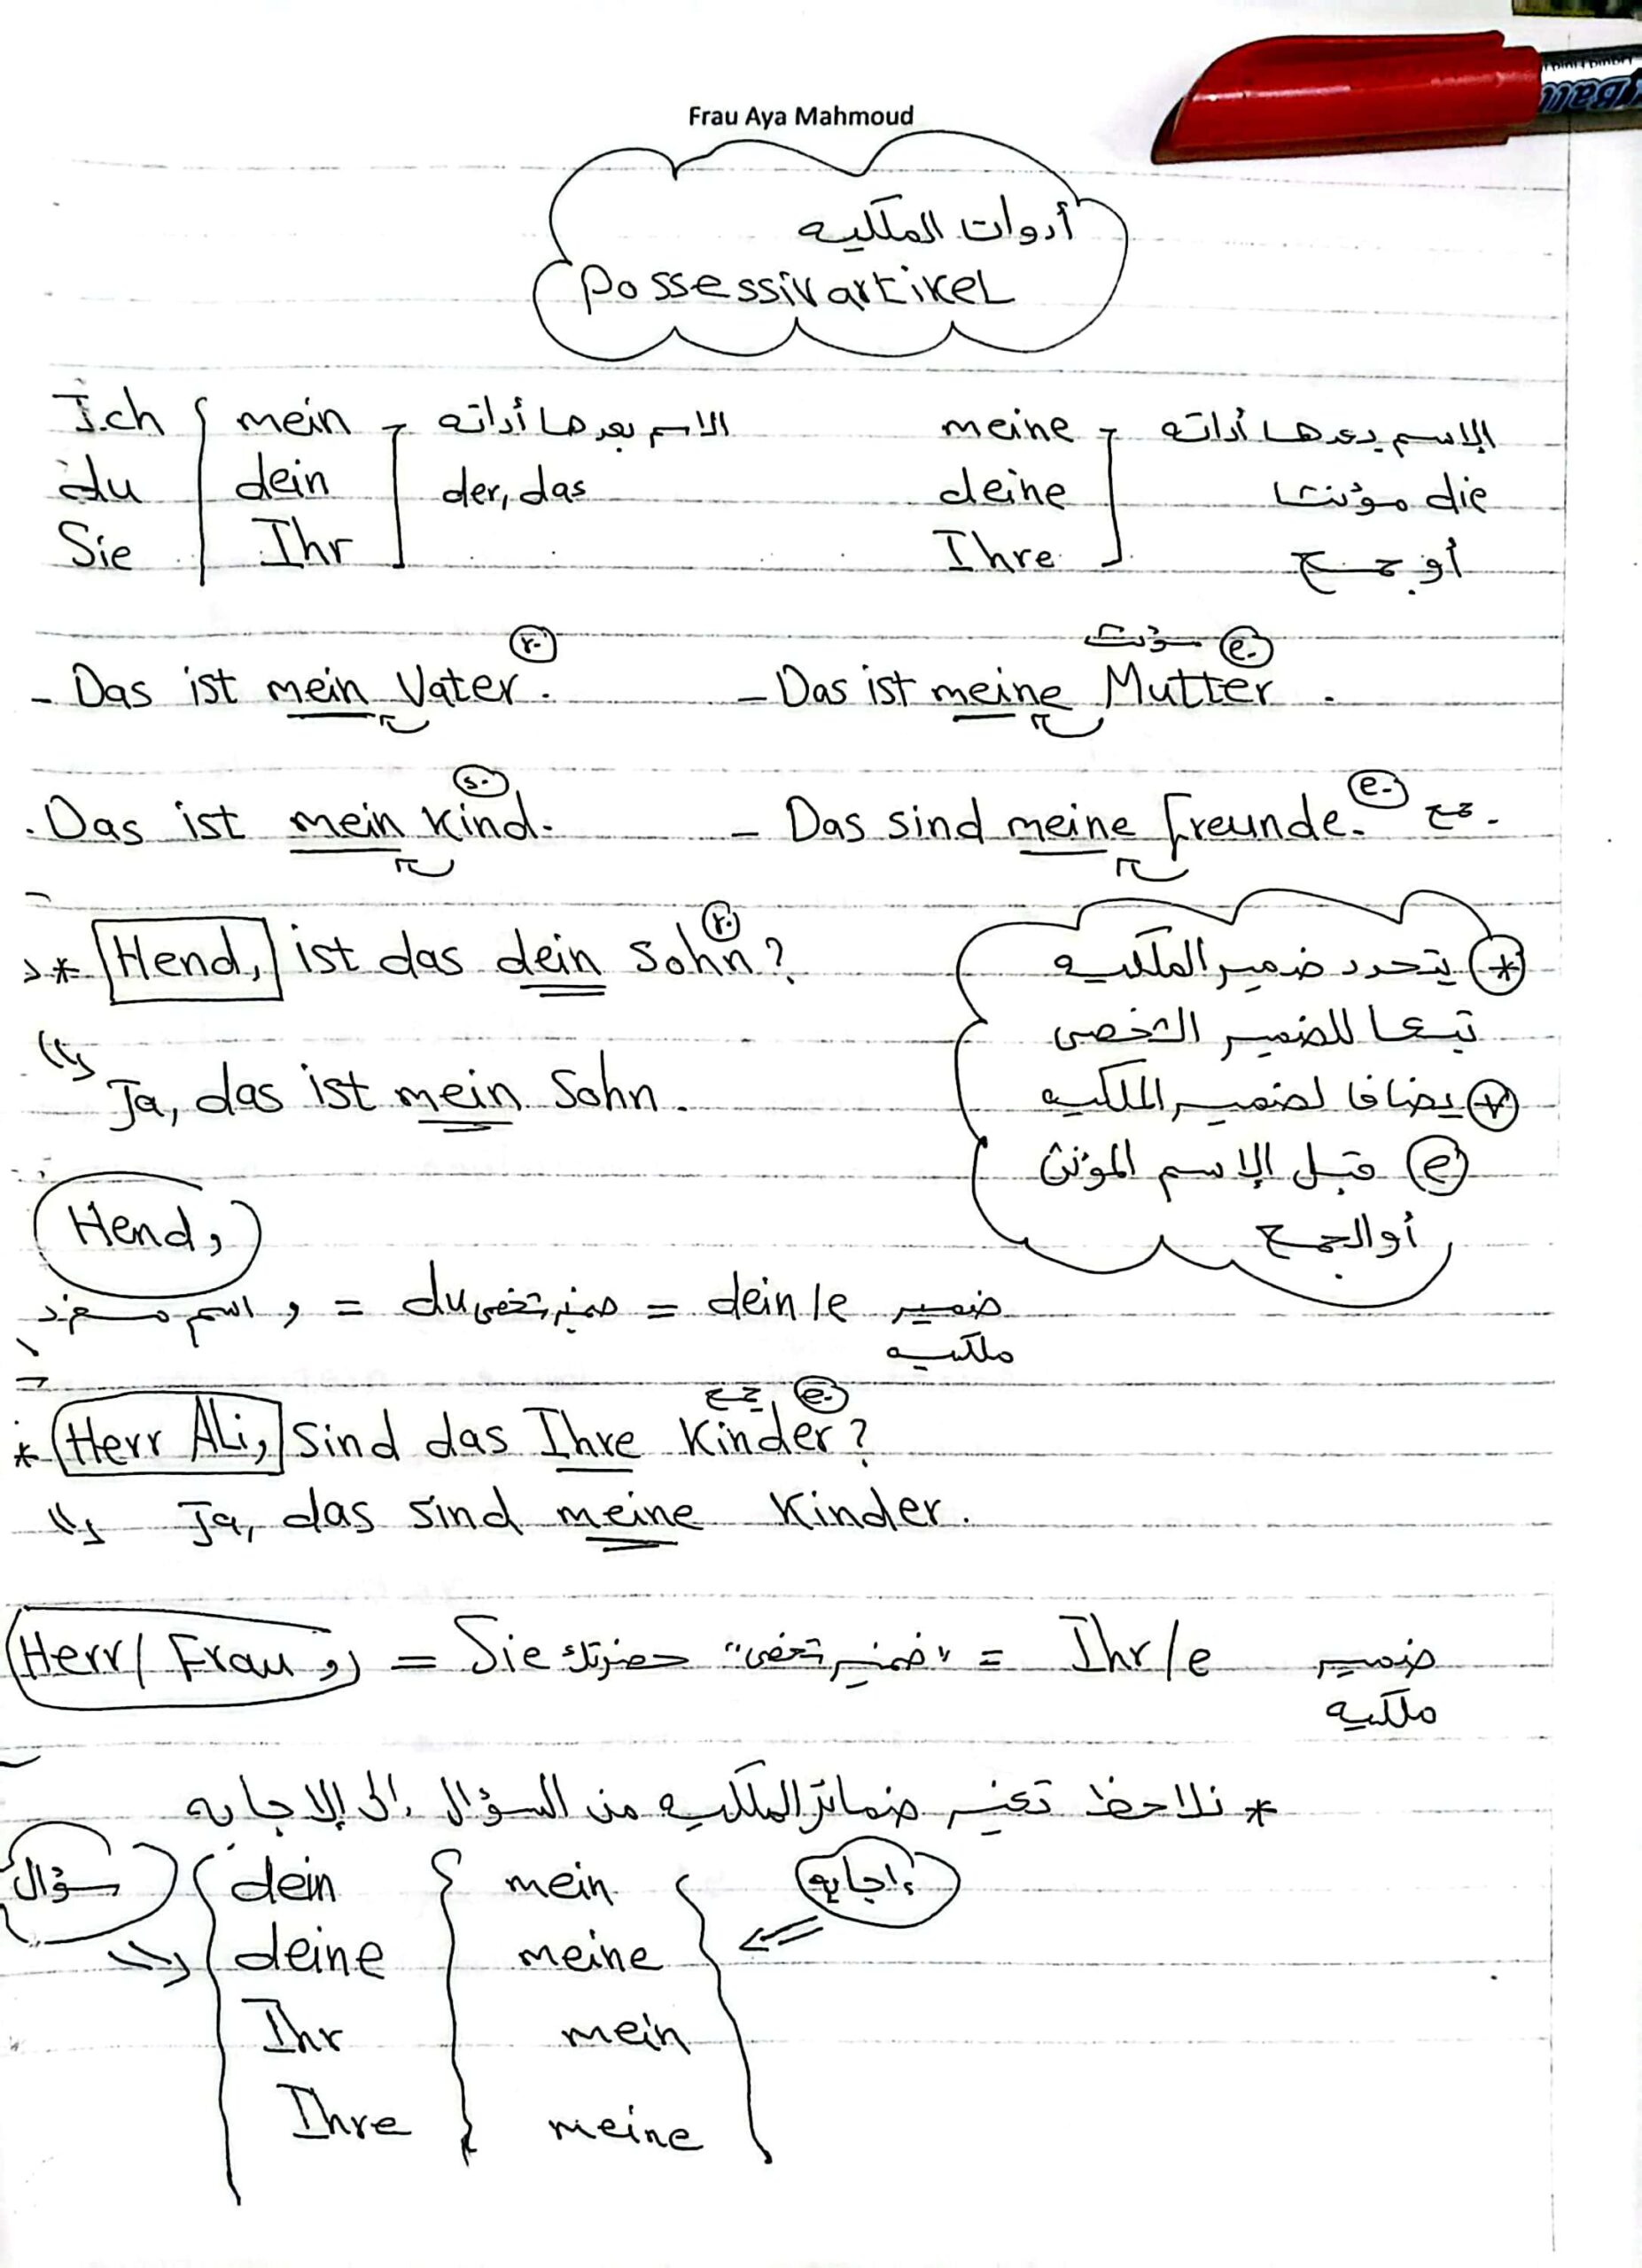 Frau Aya Mahmoud
أدوات الملكيه
Possessivartikel
Ich mein الاسم بعدها أداته meine الإسم بعدها أداته
du dein der, das deine die مؤنث
Sie Ihr Ihre أو جمع
r. مؤنث e.
- Das ist mein Vater. - Das ist meine Mutter.
s. e.
. Das ist mein Kind. - Das sind meine Freunde. جمع
r.
* Hend, ist das dein Sohn?
Ja, das ist mein Sohn.
* يتحدد ضمير الملكيه
تبعا للضمير الشخصى
يضاف لضمير الملكيه
e قبل الإسم المؤنث
أو الجمع
Hend,
اسم مفرد , = du ضمير شخصى = dein/e ضمير
ملكيه
جمع e.
* Herr Ali, sind das Ihre Kinder?
Ja, das sind meine Kinder.
Herr/ Frau , = Sie حضرتك "ضمير شخصى" = Ihr/e ضمير
ملكيه
* نلاحظ تغير ضمائر الملكيه من السؤال إلى الإجابه
سؤال dein mein إجابه
deine meine
Ihr mein
Ihre meine